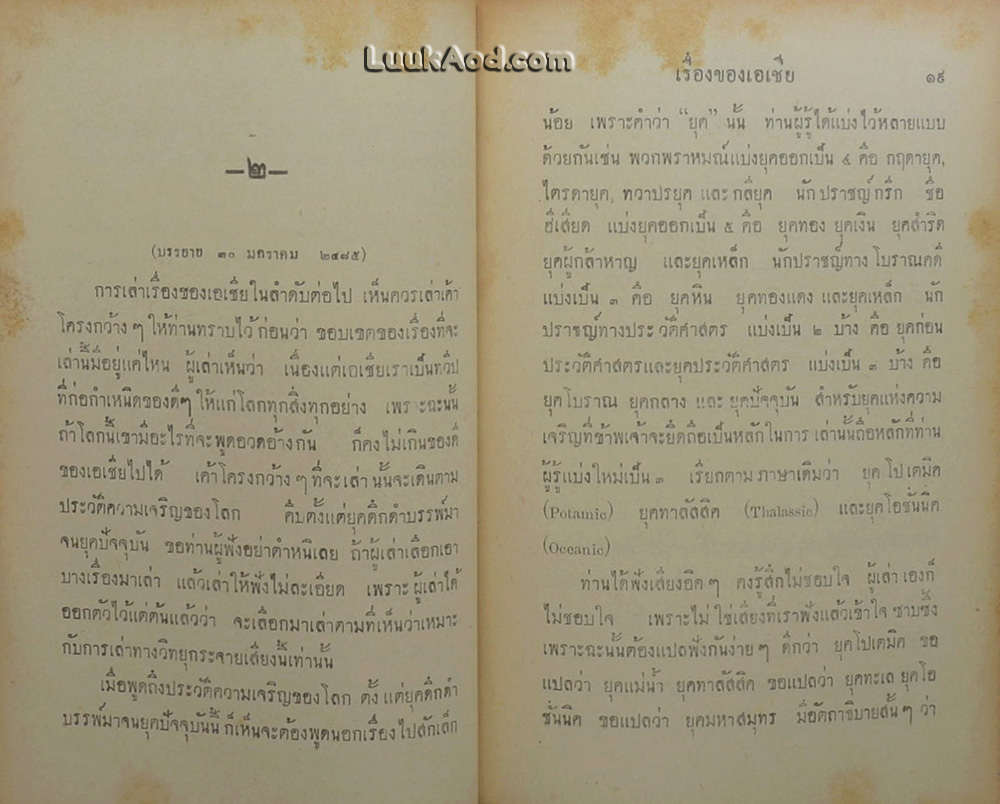 LuukAod.com
—๒—
(บรรยาย ๓๐ มกราคม ๒๔๘๕)
การเล่าเรื่องของเอเชียในลำดับต่อไป เห็นควรเล่าเค้า
โครงกว้าง ๆ ให้ท่านทราบไว้ก่อนว่า ขอบเขตของเรื่องที่จะ
เล่านี้มีอยู่แค่ไหน ผู้เล่าเห็นว่า เนื่องแต่เอเชียเราเป็นทวีป
ที่ก่อกำเหนิดของดีๆ ให้แก่โลกทุกสิ่งทุกอย่าง เพราะฉะนั้น
ถ้าโลกนี้เขามีอะไรที่จะพูดอวดอ้างกัน ก็คงไม่เกินของดี
ของเอเชียไปได้ เค้าโครงกว้าง ๆ ที่จะเล่านั้นจะเดินตาม
ประวัติความเจริญของโลก คือตั้งแต่ยุคดึกดำบรรพ์มา
จนยุคปัจจุบัน ขอท่านผู้ฟังอย่าตำหนิเลย ถ้าผู้เล่าเลือกเอา
บางเรื่องมาเล่า แล้วเล่าให้ฟังไม่ละเอียด เพราะผู้เล่าได้
ออกตัวไว้แต่ต้นแล้วว่า จะเลือกมาเล่าตามที่เห็นว่าเหมาะ
กับการเล่าทางวิทยุกระจายเสียงนี้เท่านั้น
เมื่อพูดถึงประวัติความเจริญของโลก ตั้งแต่ยุคดึกดำ
บรรพ์มาจนยุคปัจจุบันนี้ ก็เห็นจะต้องพูดนอกเรื่องไปสักเล็ก
เรื่องของเอเชีย ๑๙
น้อย เพราะคำว่า “ยุค” นั้น ท่านผู้รู้ได้แบ่งไว้หลายแบบ
ด้วยกันเช่น พวกพราหมณ์แบ่งยุคออกเป็น ๔ คือ กฤดายุค,
ไตรดายุค, ทวาปรยุค และ กลียุค นักปราชญ์กรีก ชื่อ
ฮีเสียด แบ่งยุคออกเป็น ๕ คือ ยุคทอง ยุคเงิน ยุคสำริด
ยุคผู้กล้าหาญ และยุคเหล็ก นักปราชญ์ทางโบราณคดี
แบ่งเป็น ๓ คือ ยุคหิน ยุคทองแดง และยุคเหล็ก นัก
ปราชญ์ทางประวัติศาสตร แบ่งเป็น ๒ บ้าง คือ ยุคก่อน
ประวัติศาสตรและยุคประวัติศาสตร แบ่งเป็น ๓ บ้าง คือ
ยุคโบราณ ยุคกลาง และ ยุคปัจจุบัน สำหรับยุคแห่งความ
เจริญที่ข้าพเจ้าจะยึดถือเป็นหลักในการ เล่านั้นถือหลักที่ท่าน
ผู้รู้แบ่งใหม่เป็น ๓ เรียกตามภาษาเดิมว่า ยุคโปเตมิค
(Potamic) ยุคทาลัสสิค (Thalassic) และยุคโอชันนิค
(Oceanic)
ท่านได้ฟังเสียงอิค ๆ คงรู้สึกไม่ชอบใจ ผู้เล่าเองก็
ไม่ชอบใจ เพราะไม่ใช่เสียงที่เราฟังแล้วเข้าใจซาบซึ้ง
เพราะฉะนั้นต้องแปลฟังกันง่าย ๆ ดีกว่า ยุคโปเตมิค ขอ
แปลว่า ยุคแม่น้ำ ยุคทาลัสสิค ขอแปลว่า ยุคทะเล ยุคโอ
ชันนิค ขอแปลว่า ยุคมหาสมุทร มีอัตถาธิบายสั้น ๆ ว่า